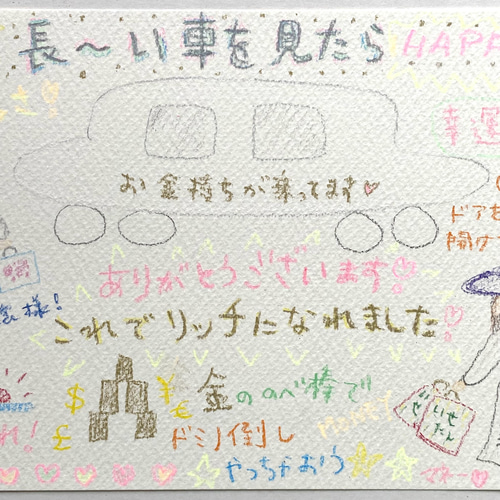 長～い車を見たら
HAPP
幸運
お金持ちが乗ってます♡
ドアを
開け
ありがとうございます
様!
これでリッチになれました♡
れ!
$ ¥ € £
金ののべ棒で
ドミノ倒し
やっちゃおう
MONEY
いせたん
マネー